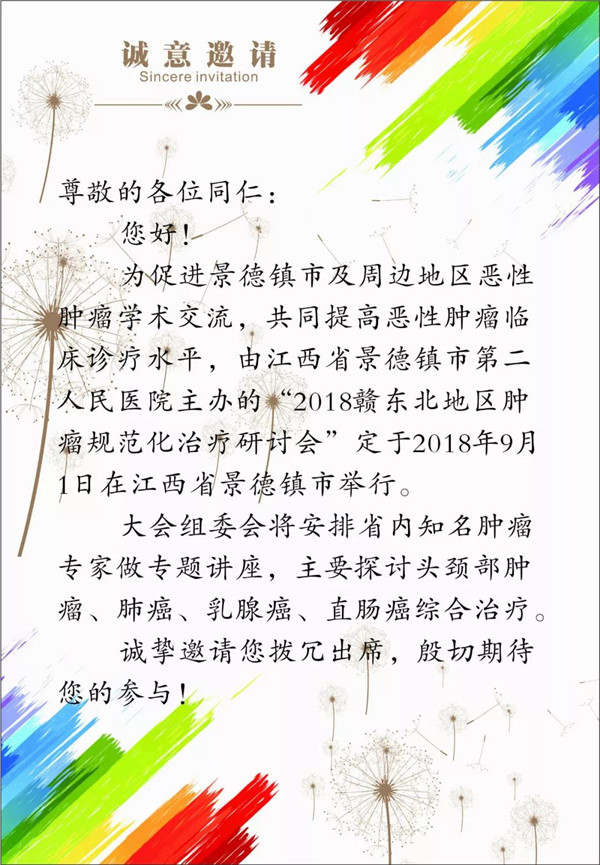 诚意邀请
Sincere invitation
尊敬的各位同仁：
您好！
为促进景德镇市及周边地区恶性
肿瘤学术交流，共同提高恶性肿瘤临
床诊疗水平，由江西省景德镇市第二
人民医院主办的“2018赣东北地区肿
瘤规范化治疗研讨会”定于2018年9月
1日在江西省景德镇市举行。
大会组委会将安排省内知名肿瘤
专家做专题讲座，主要探讨头颈部肿
瘤、肺癌、乳腺癌、直肠癌综合治疗。
诚挚邀请您拨冗出席，殷切期待
您的参与！